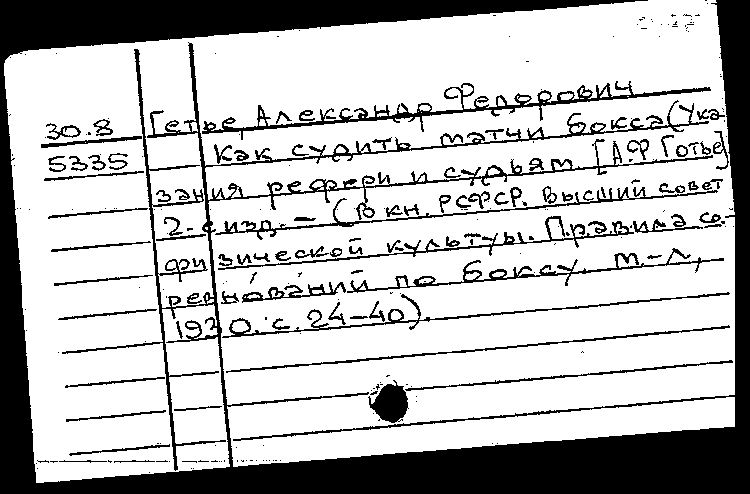 30.8 Гетье, Александр Федорович
5335 Как судить матчи бокса (Ука-
зания рефери и судьям. [А.Ф Готье]
2-е изд. - (В кн. РСФСР. Высший совет
физической культуры. Правила со-
ревнований по боксу. М.-Л.,
1930. с. 24-40).